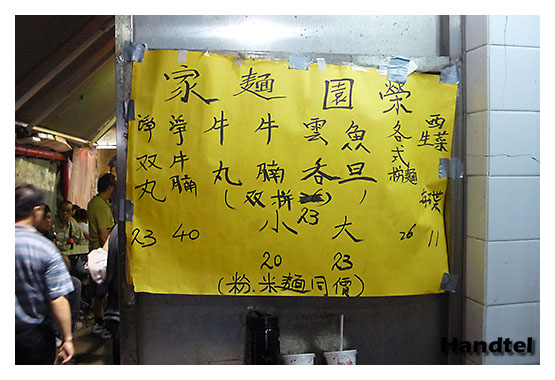 榮園麵家
西生菜
11
各式捞麵
26
魚旦
雲吞
牛腩
牛丸
(双拼 23)
大 23
小 20
淨牛腩
40
淨双丸
23
(粉.米麵同價)
Handtel